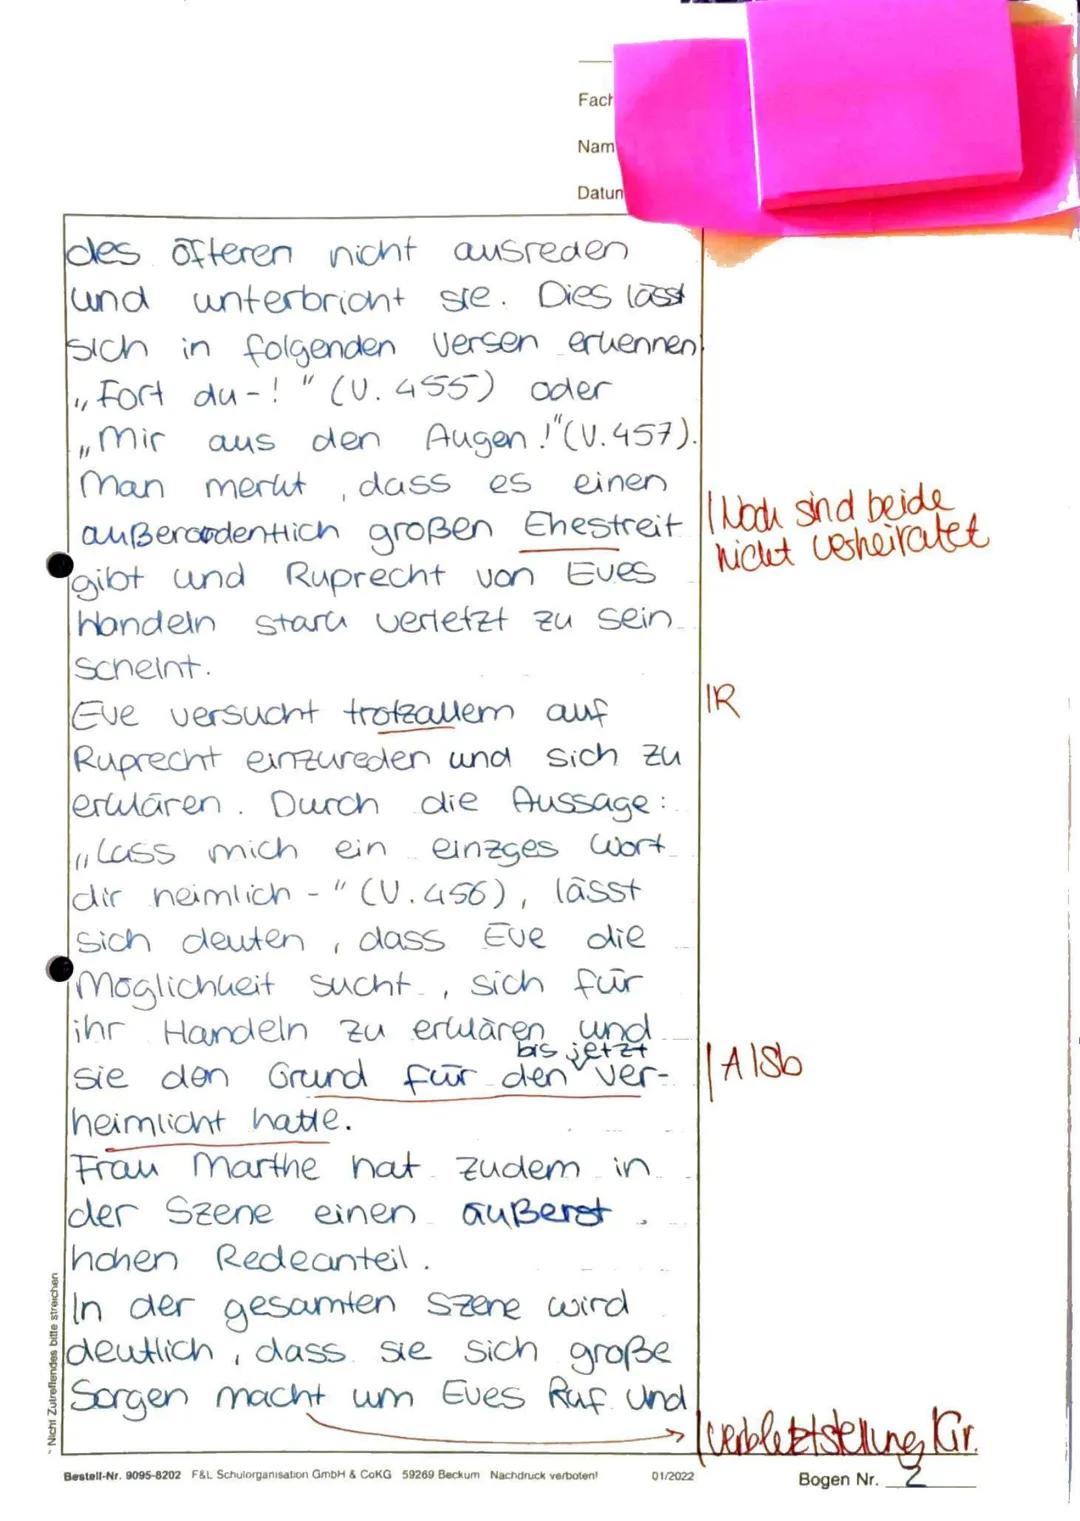 Fach
Nam
Datun
des öfteren nicht ausreden
und unterbricht sie. Dies lässt
sich in folgenden Versen erkennen:
„Fort du-!" (V. 455) oder
„Mir aus den Augen!" (V. 457).
Man merkt, dass es einen
außerordentlich großen Ehestreit
|Noch sind beide
nicht verheiratet
gibt und Ruprecht von Eves
Handeln stark verletzt zu sein
scheint.
Eve versucht trotzallem auf
|R
Ruprecht einzureden und sich zu
erklären. Durch die Aussage:
„Lass mich ein einzges Wort
dir heimlich -" (V. 456), lässt
sich deuten, dass Eve die
Möglichkeit sucht, sich für
ihr Handeln zu erklären und
bis jetzt
sie den Grund für den ver-
|A|Sb
heimlicht hatte.
Frau Marthe hat zudem in
der Szene einen äußerst
hohen Redeanteil.
In der gesamten Szene wird
deutlich, dass sie sich große
Sorgen macht um Eves Ruf und
|Verbletztstellung, Gr.
* Nicht Zutreffendes bitte streichen
Bestell-Nr. 9095-8202 F&L Schulorganisation GmbH & CoKG 59269 Beckum Nachdruck verboten! 01/2022
Bogen Nr. 2